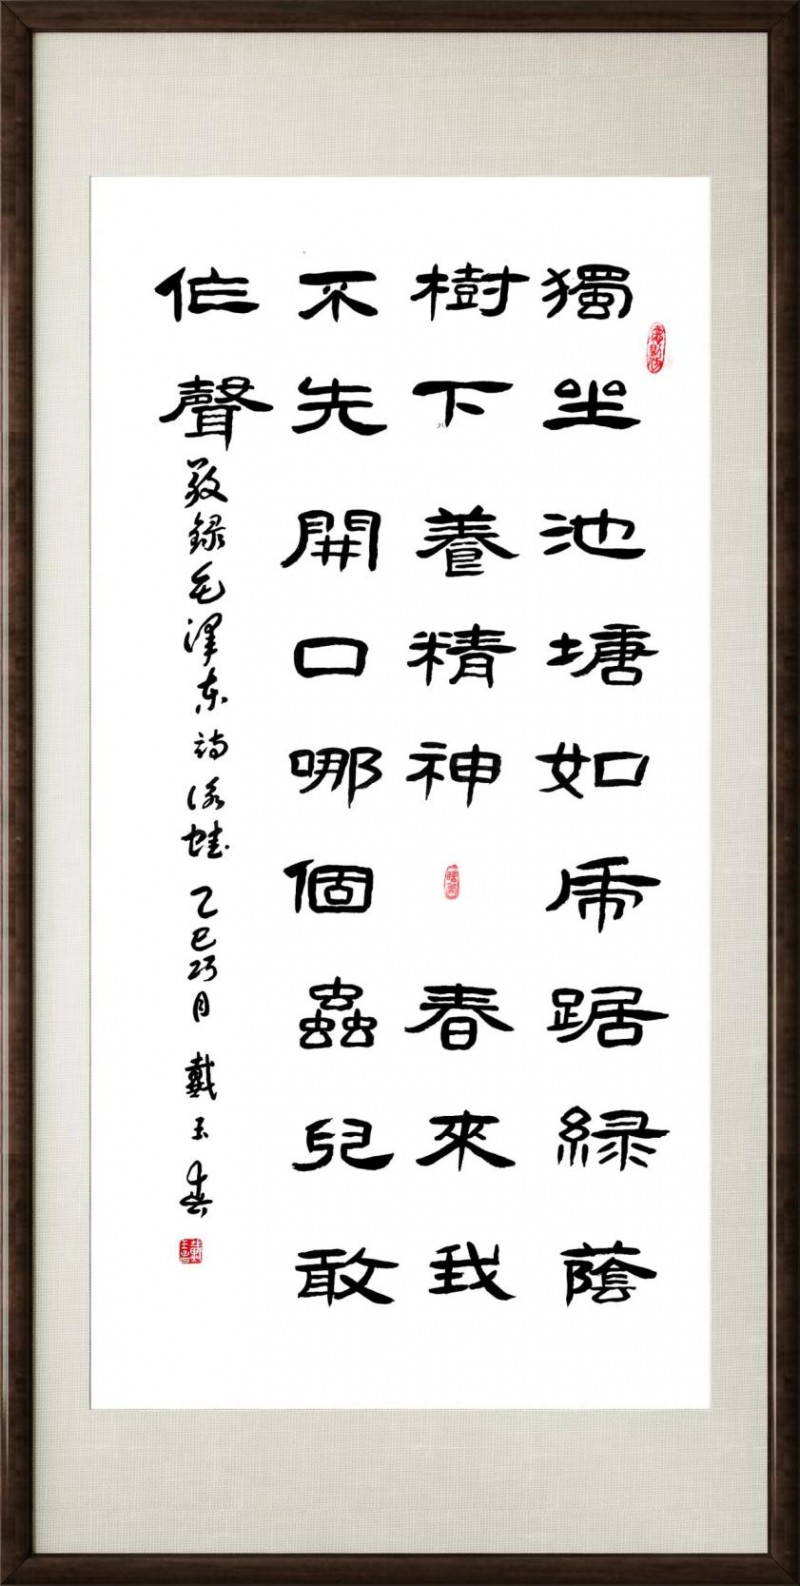 獨坐池塘如虎踞緑蔭
樹下養精神春來我
不先開口哪個蟲兒敢
作聲
敬録毛泽东诗詠蛙乙巳巧月戴玉春